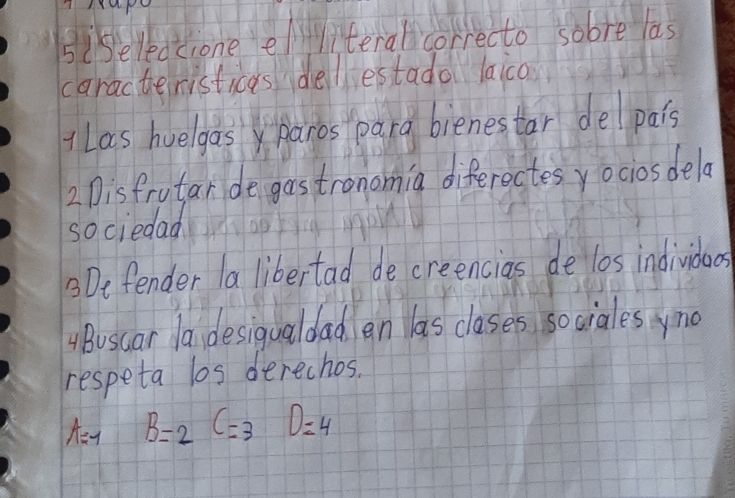 5¿Seleccione el literal correcto sobre las
caracteristicas del estado laico.
1 Las huelgas y paros para bienestar del país
2 Disfrutar de gastronomía diferectes y ocios dela
sociedad
3 Defender la libertad de creencias de los individuos
4 Buscar la desigualdad en las clases sociales y no
respeta los derechos.
A=1 B=2 C=3 D=4